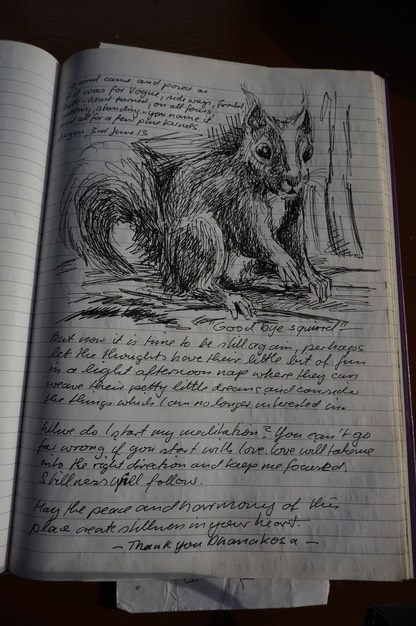 and came and posed as
it was for Vogue, side ways, frontal
head turned, on all fours,
standing - you name it
and all for a few pine kernels
3rd June 13
"Good bye squirrel"
But now it is time to be still again, perhaps
let the thoughts have their little bit of fun
in a light afternoon nap where they can
weave their petty little dreams and consider
the things which I am no longer interested in.
Where do I start my meditation? You can't go
far wrong if you start with love. Love will take me
into the right direction and keep me focused.
Stillness will follow.
May the peace and harmony of this
place create stillness in your heart.
- Thank you Dhanakosa -